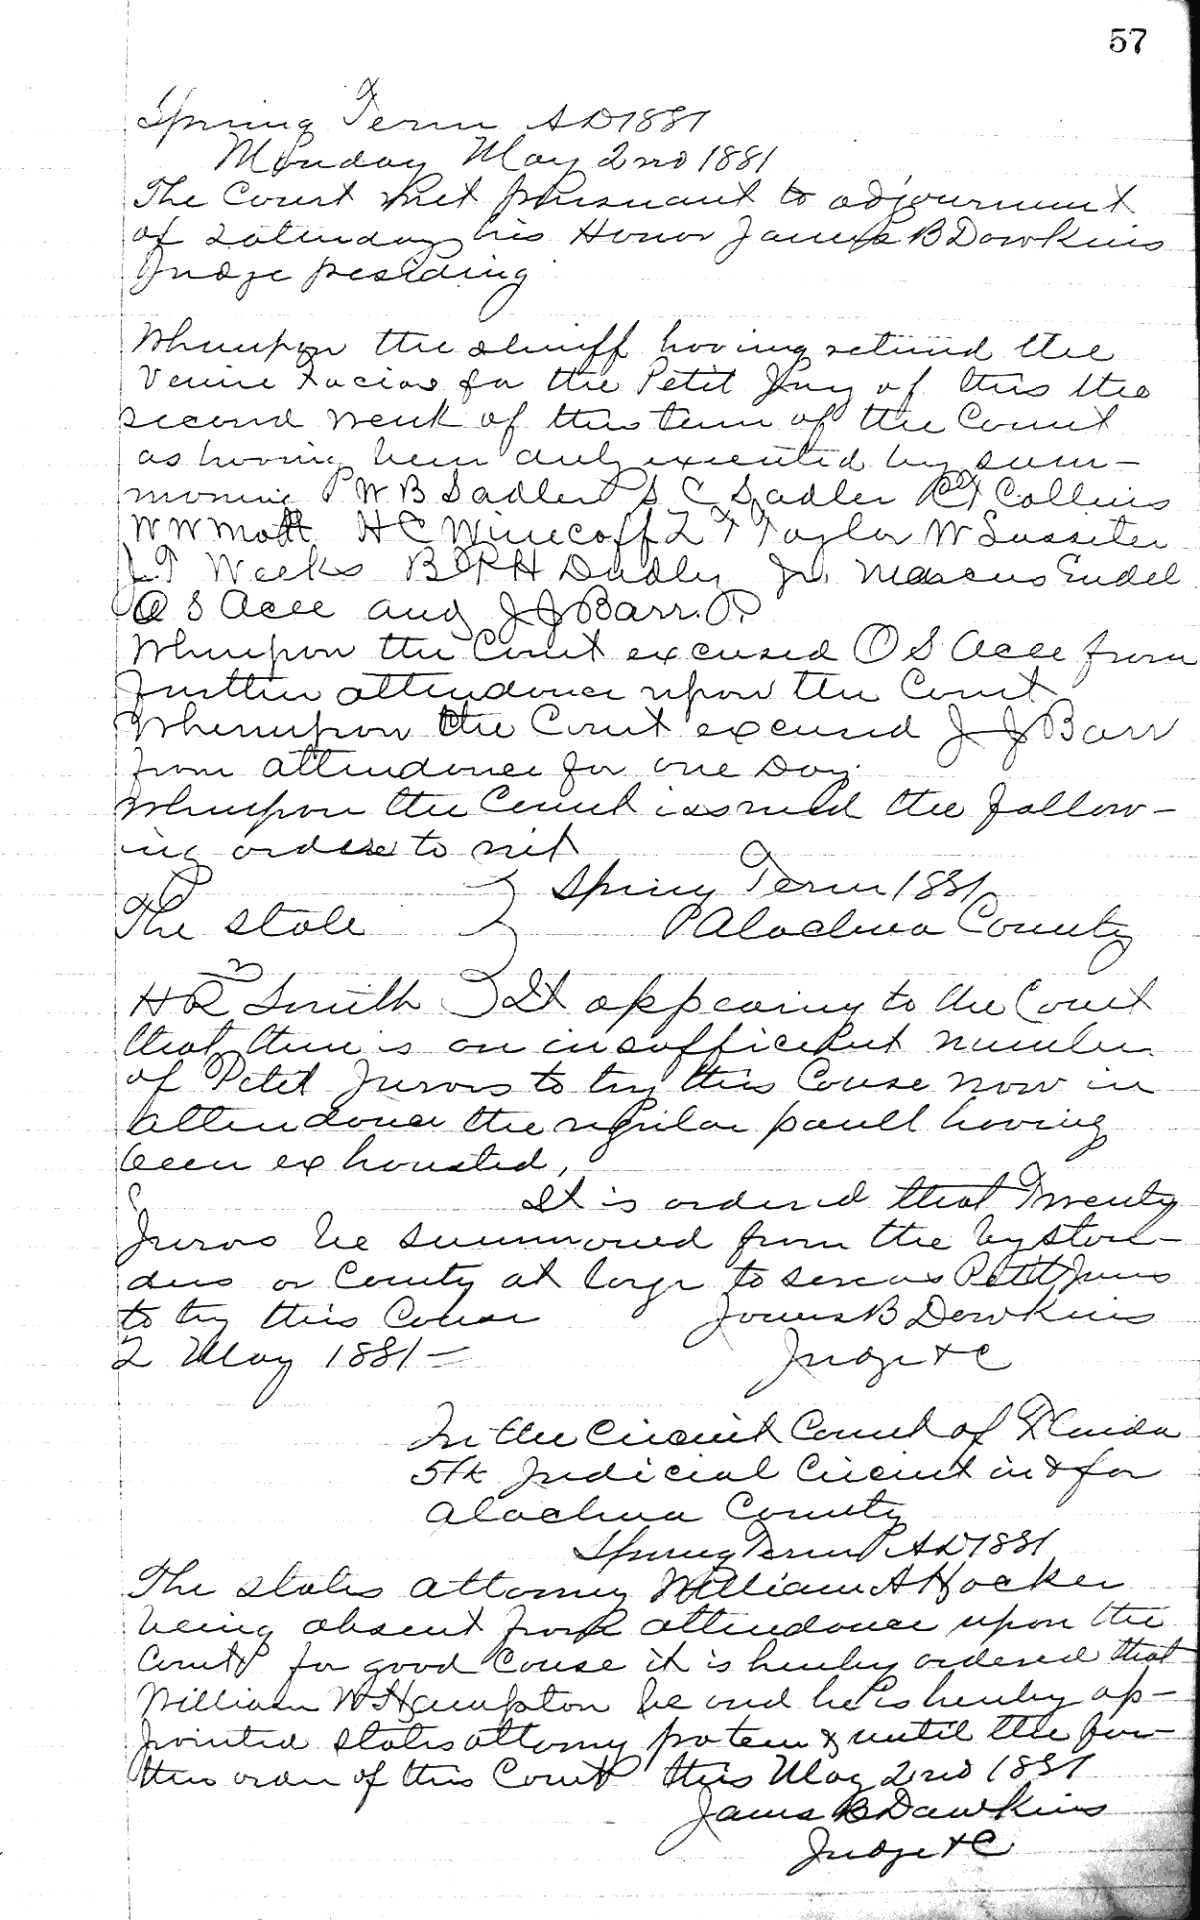 57
Spring Term AD 1881
Monday May 2nd 1881
The Court met pursuant to adjournment
of Saturday his Honor James B Dawkins
Judge presiding
Whereupon the sheriff having returned the
Venire Facias for the Petit Jury of this the
second week of this term of the Court
as having been duly executed by sum-
moning W B Sadler S C Sadler Collins
W W Mott H C Winecoff L F Taylor W Lassiter
J T Weeks B H Dudley Jr. Marcus Endel
O S Acee and J J Barr.
Whereupon the Court excused O S Acee from
further attendance upon the Court
Whereupon the Court excused J J Barr
from attendance for one Day.
Whereupon the Court issued the follow-
ing order to wit
Spring Term 1881
The State Alachua County
vs
H R Smith It appearing to the Court
that there is an insufficient number
of Petit Jurors to try this Cause now in
attendance the regular panell having
been exhausted,
It is ordered that Twenty
Jurors be summoned from the bystan-
ders or County at large to serve as Petit Jurors
to try this Cause James B Dawkins
2 May 1881 = Judge &C
In the Circuit Court of Florida
5th Judicial Circuit in & for
Alachua County
Spring Term AD 1881
The states attorney William A Hocker
being absent from attendance upon the
Court for good Cause it is hereby ordered that
William W Hampton be and he is hereby ap-
pointed states attorney pro tem & until the fur-
ther order of this Court this May 2nd 1881
James B Dawkins
Judge &C